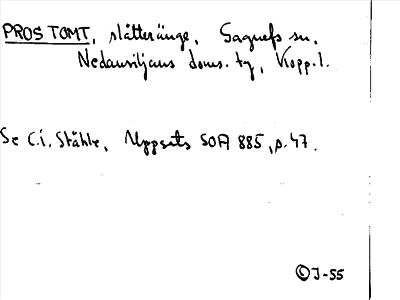 PROS TOMT, slåtteränge, Gagnefs sn.
Nedansiljans doms. tg, Kopp.l.
Se C.I. Ståhle, Uppsats SOA 885, p.47.
© J-55